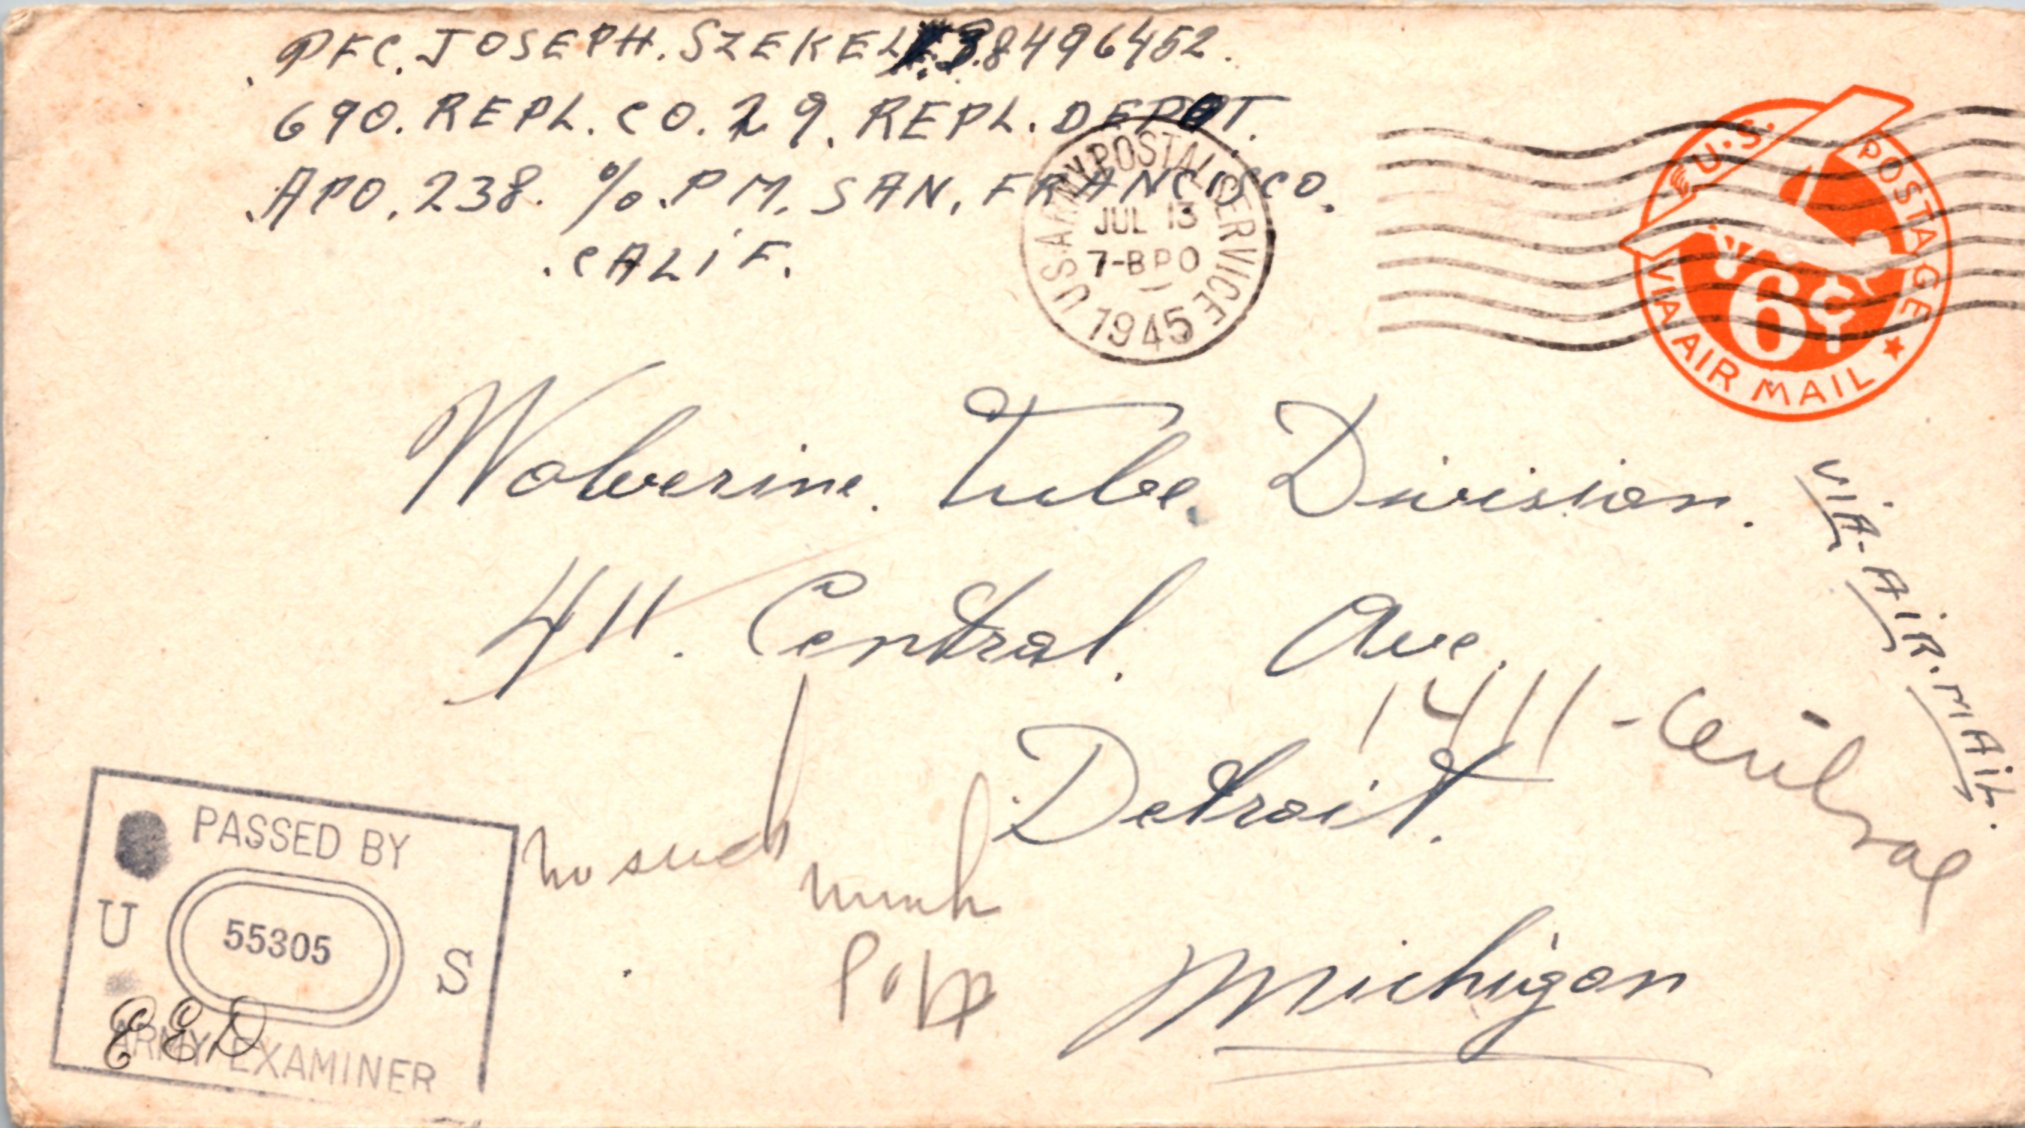 PFC. JOSEPH. SZEKELY 38496452.
690. REPL. CO. 29. REPL. DEPOT.
APO. 238. % P.M. SAN. FRANCISCO.
CALIF.
U.S. ARMY POSTAL SERVICE
JUL 13
7-BPO
1945
U.S. POSTAGE
6¢
VIA AIR MAIL
Wolverine. Tube. Division.
411. Central. Ave.
VIA-AIR-MAIL.
1411 - Central
Detroit.
Michigan
no such
numb
PASSED BY
U 55305 S
ARMY EXAMINER